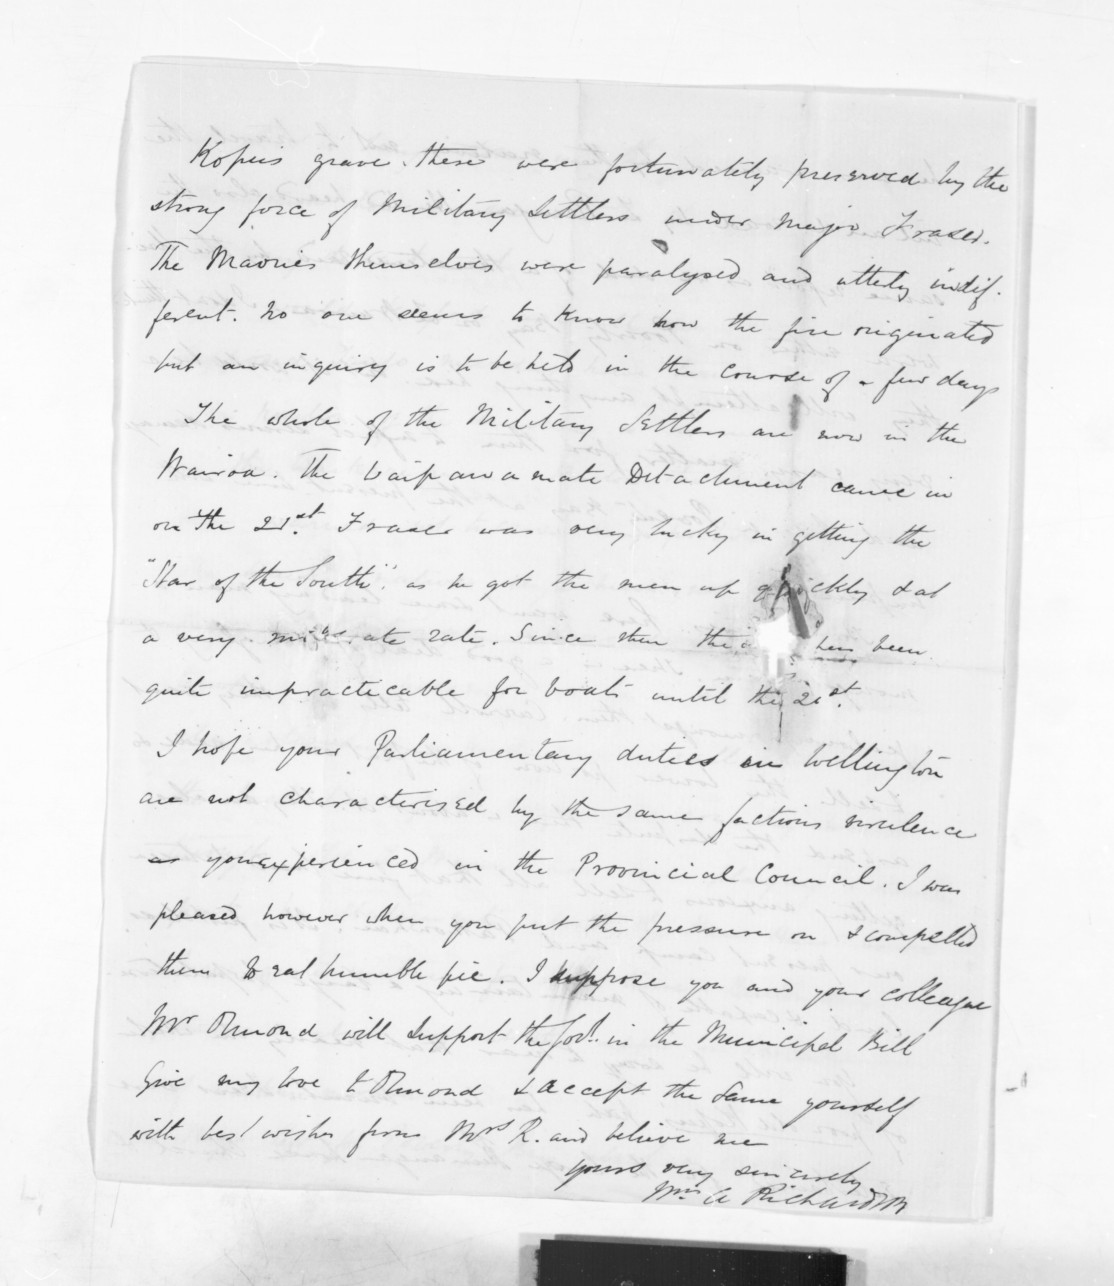 Kopu's grave. these were fortunately preserved by the
strong force of Military Settlers under Major Fraser.
The Maories themselves were paralysed and utterly indif-
ferent. No one seems to know how the fire originated
but an inquiry is to be held in the course of a few days
The whole of the Military Settlers are now in the
Wairoa. The Waipawa mate Detachment came in
on the 21st. Fraser was very lucky in getting the
"Star of the South". as he got the men up quickly & at
a very rate. Since then the has been
quite impracticable for boats until the 21st.
I hope your Parliamentary duties in Wellington
are not characterised by the same factious virulence
as you experienced in the Provincial Council. I was
pleased however when you put the pressure on & compelled
them to eat humble pie. I suppose you and your colleague
Mr Ormond will support the Govt. in the Municipal Bill
Give my love to Ormond & accept the same yourself
with best wishes from Mrs R. and believe me
yours very sincerely
Wm A Richardson